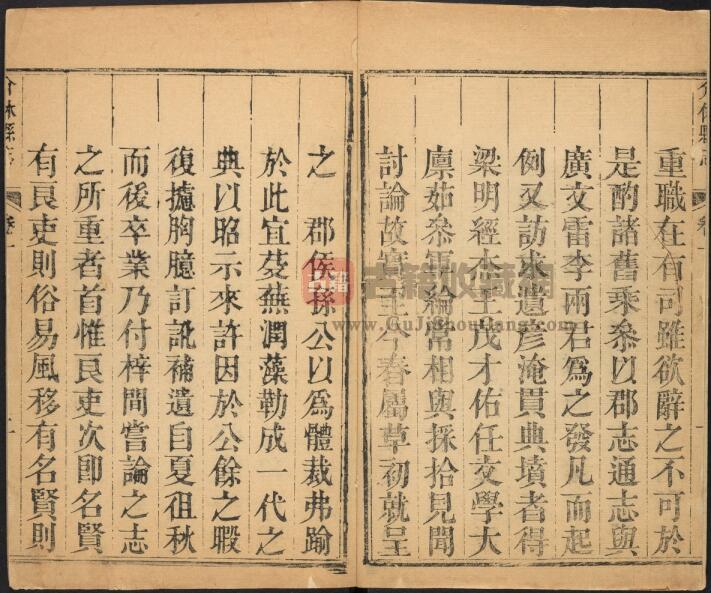 重職在有司雖欲辭之不可於
是酌諸舊乘叅以郡志通志與
廣文雷李兩君爲之發凡而起
例又訪求遺彦淹貫典墳者得
梁明經本立茂才佑任文學大
廪茹叅軍綸常相與採拾見聞
討論故實至今春屬草初就呈
之 郡侯孫公以爲體裁弗踰
於此宜芟蕪潤藻勒成一代之
典以昭示來許因於公餘之暇
復攄胸臆訂訛補遺自夏徂秋
而後卒業乃付梓間嘗論之志
之所重者首惟良吏次卽名賢
有良吏則俗易風移有名賢則
介休縣志
卷一
介休縣志
卷一
古籍收藏网
www.GuJiShouCang.com